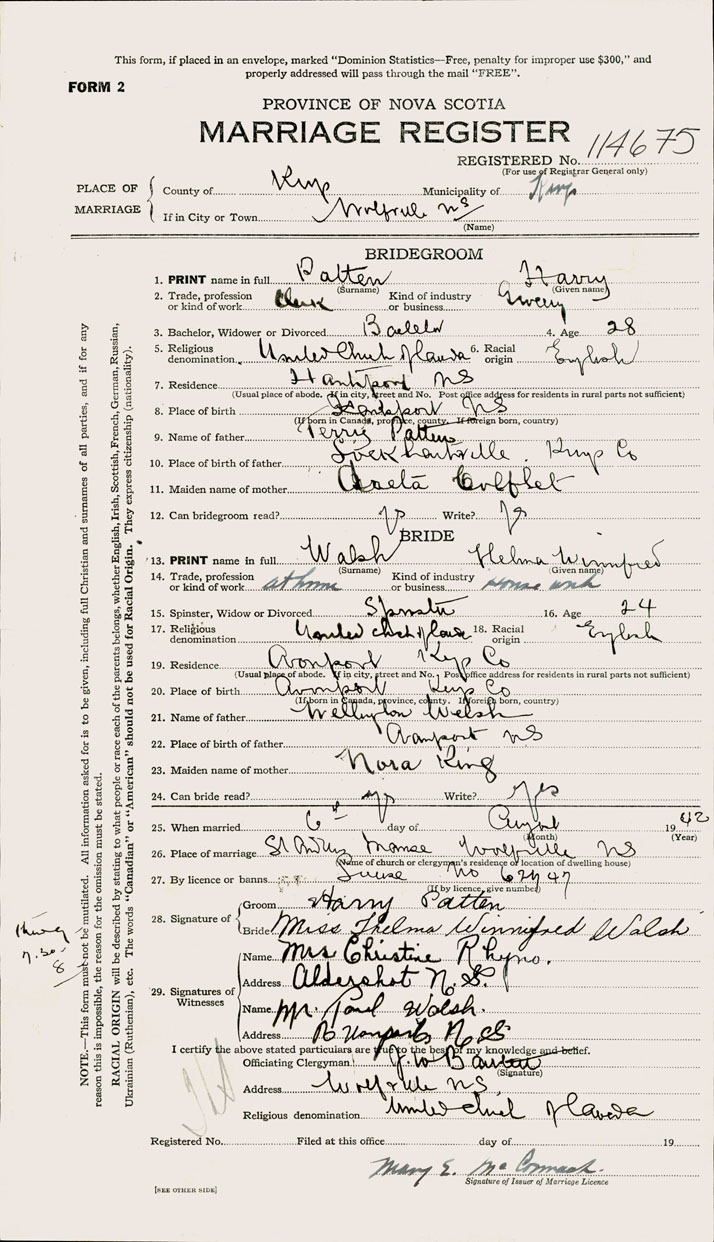 This form, if placed in an envelope, marked “Dominion Statistics—Free, penalty for improper use $300,” and
properly addressed will pass through the mail “FREE”.
FORM 2
PROVINCE OF NOVA SCOTIA
MARRIAGE REGISTER
REGISTERED No. 114675
(For use of Registrar General only)
PLACE OF MARRIAGE
County of Kings Municipality of Kings
If in City or Town Wolfville NS
(Name)
BRIDEGROOM
1. PRINT name in full Patten Harry
(Surname) (Given name)
2. Trade, profession or kind of work Clerk Kind of industry or business Grocery
3. Bachelor, Widower or Divorced Bachelor 4. Age 28
5. Religious denomination United Church of Canada 6. Racial origin English
7. Residence Hantsport NS
(Usual place of abode. If in city, street and No. Post office address for residents in rural parts not sufficient)
8. Place of birth Hantsport NS
(If born in Canada, province, county. If foreign born, country)
9. Name of father Patten
10. Place of father Lockhartville Kings Co
11. Maiden name of mother
12. Can bridegroom read? yes Write? yes
BRIDE
13. PRINT name in full Walsh Thelma Winnifred
(Surname) (Given name)
14. Trade, profession or kind of work at home Kind of industry or business House work
15. Spinster, Widow or Divorced Spinster 16. Age 24
17. Religious denomination United church of Canada 18. Racial origin English
19. Residence Avonport Kings Co
(Usual place of abode. If in city, street and No. Post office address for residents in rural parts not sufficient)
20. Place of birth Avonport Kings Co
(If born in Canada, province, county. If foreign born, country)
21. Name of father Wellington Walsh
22. Place of birth of father Avonport NS
23. Maiden name of mother Nora King
24. Can bride read? yes Write? yes
25. When married 6th day of August 1942
(Month) (Year)
26. Place of marriage St Andrews Manse Wolfville NS
(Name of church or clergyman's residence or location of dwelling house)
27. By licence or banns License No 67947
(If by licence, give number)
28. Signature of
Groom Harry Patten
Bride Miss Thelma Winnifred Walsh
29. Signatures of Witnesses
Name Mrs Christine Rhyno.
Address Aldershot N.S.
Name Mr. Paul Walsh.
Address Avonport N.S
I certify the above stated particulars are true to the best of my knowledge and belief.
Officiating Clergyman
(Signature)
Address Wolfville NS,
Religious denomination United Church of Canada
Registered No. Filed at this office day of 19
Mary E. McCormack.
Signature of Issuer of Marriage Licence
[SEE OTHER SIDE]
NOTE.—This form must not be mutilated. All information asked for is to be given, including full Christian and surnames of all parties, and if for any
reason this is impossible, the reason for the omission must be stated.
RACIAL ORIGIN will be described by stating to what people or race each of the parents belongs, whether English, Irish, Scottish, French, German, Russian,
Ukrainian (Ruthenian), etc. The words “Canadian” or “American” should not be used for Racial Origin. They express citizenship (nationality).
7.30
8